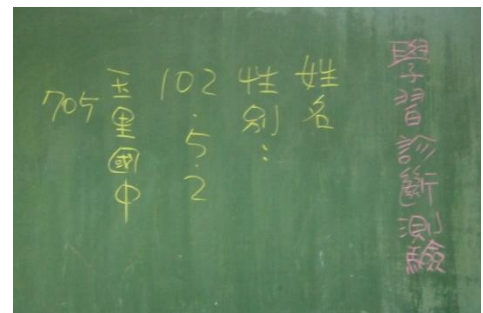 學習診斷測驗
姓名
性別:
102.5.2
玉里國中
705